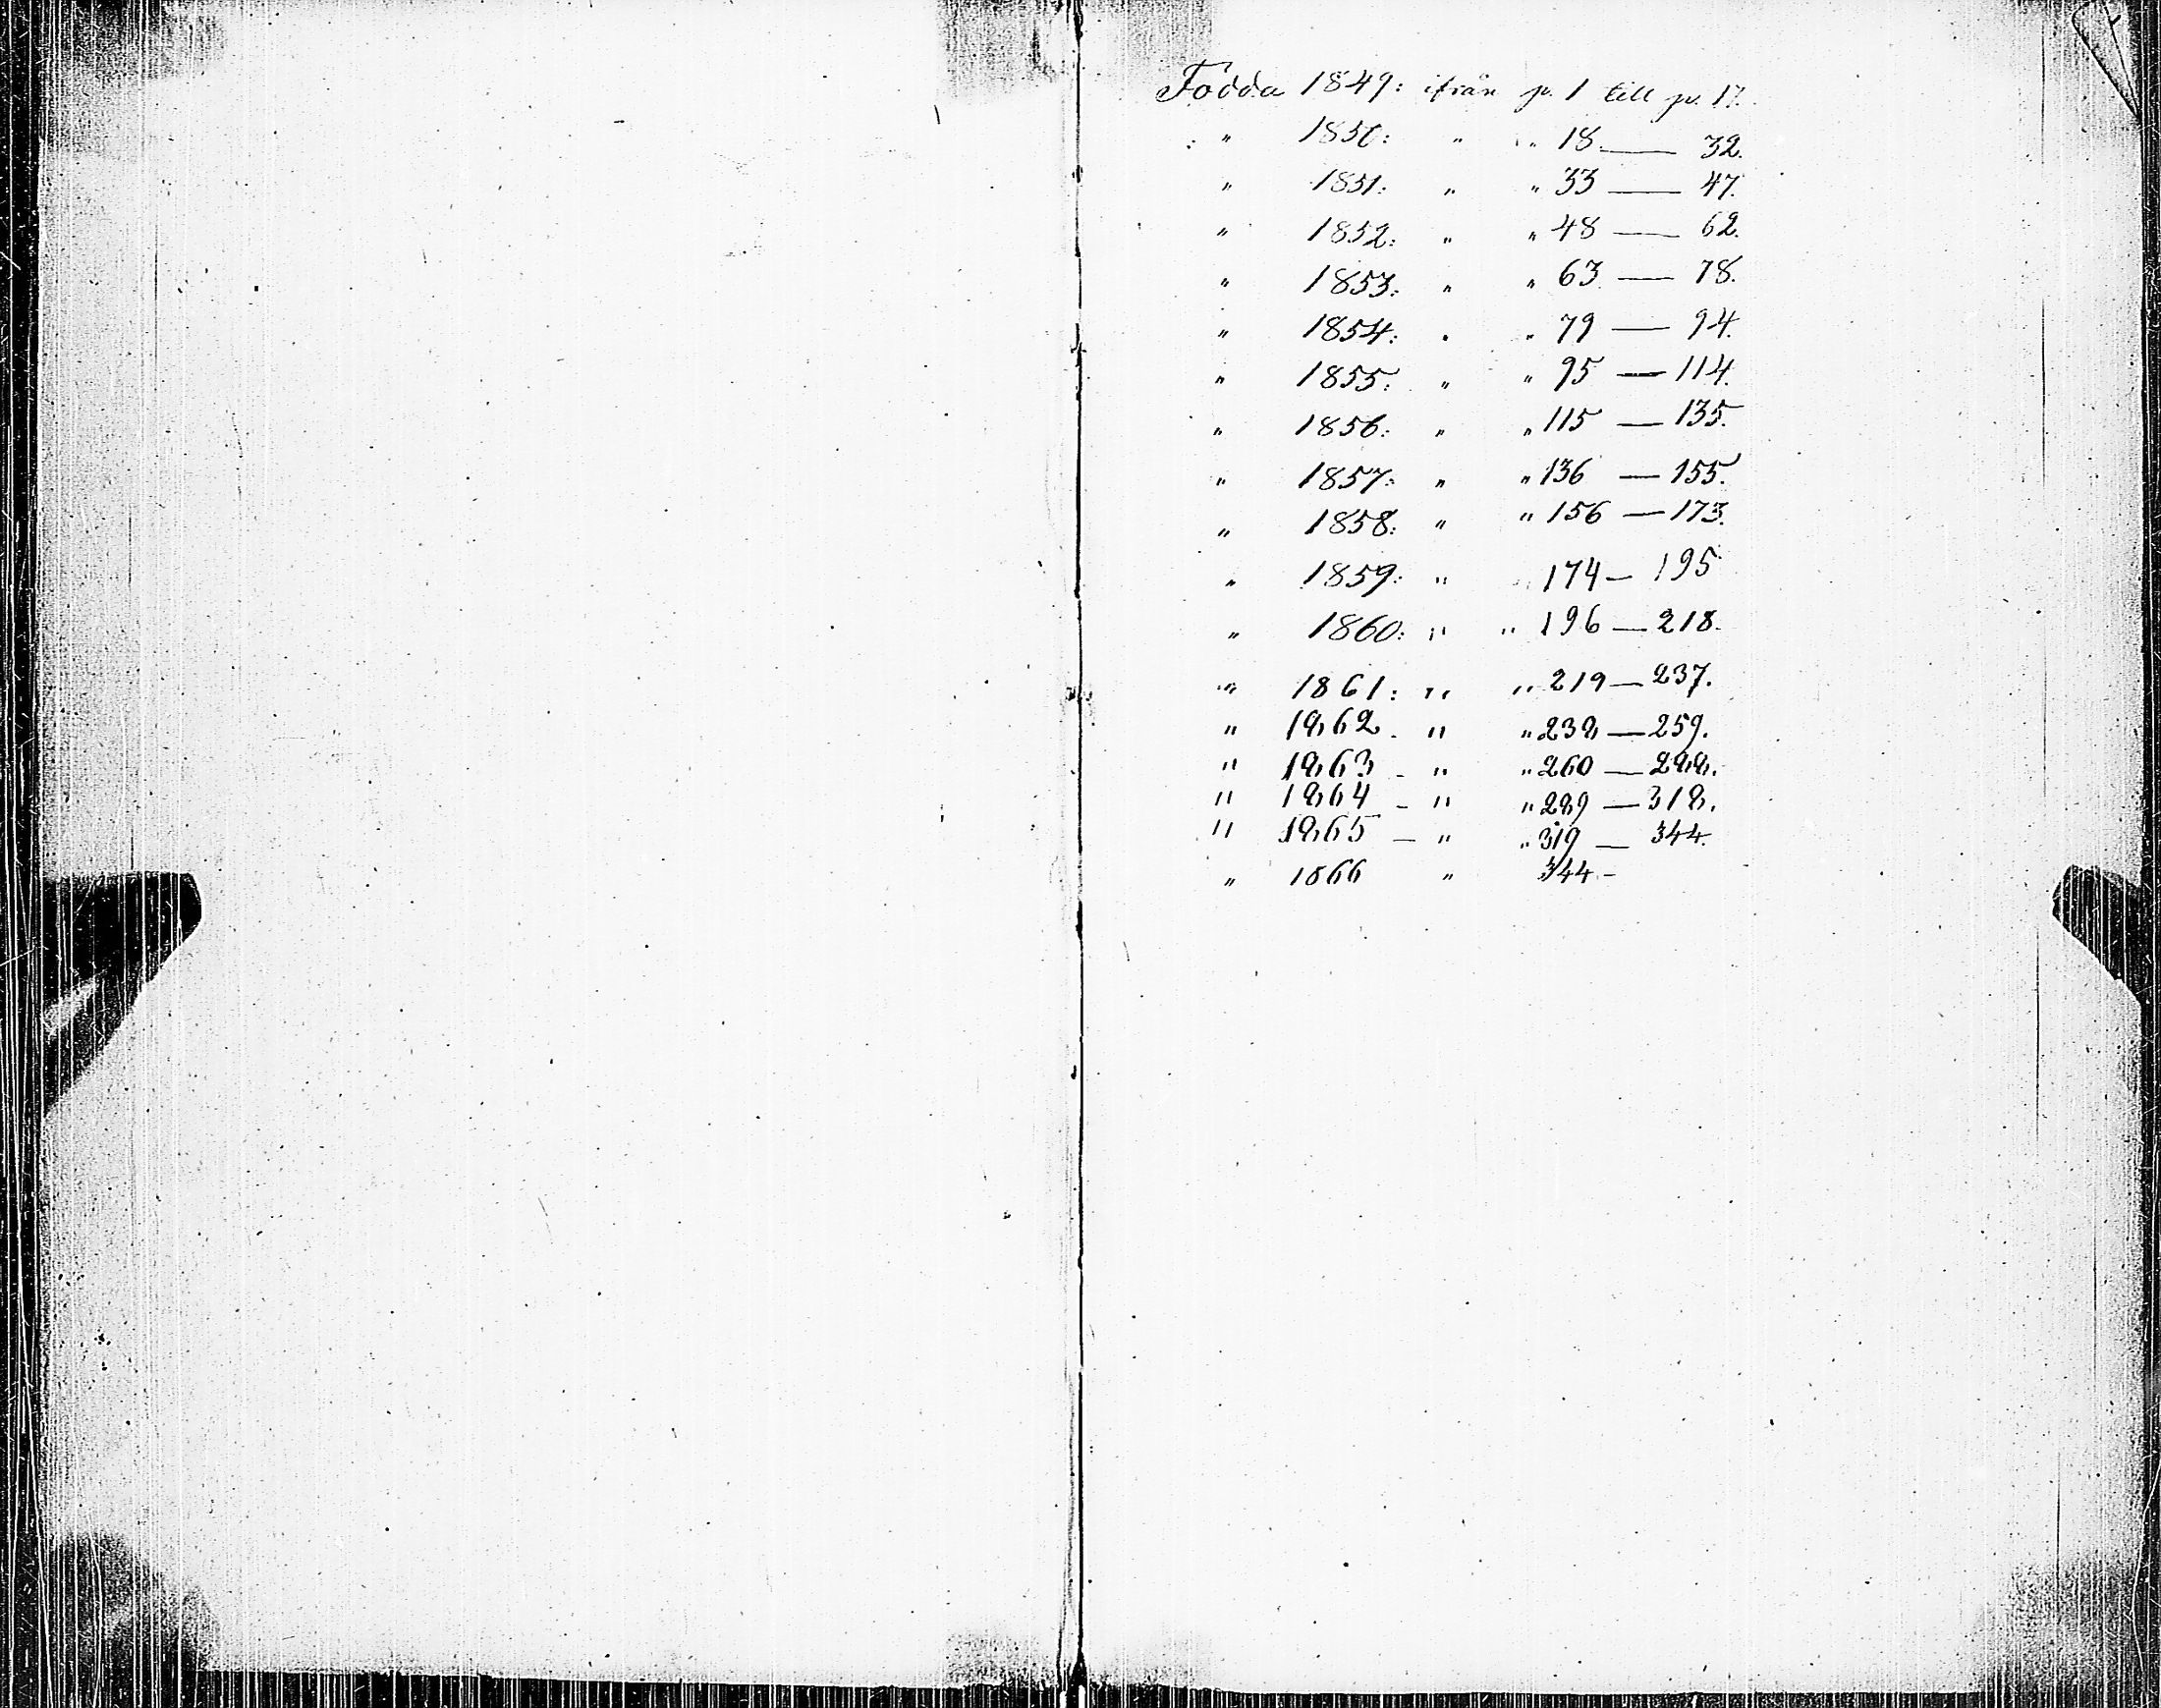 Födda 1849: ifrån p. 1 till p. 17.
" 1850: " " 18. — 32.
" 1851: " " 33 — 47.
" 1852: " " 48 — 62.
" 1853: " " 63. — 78.
" 1854: " " 79 — 94.
" 1855: " " 95 — 114.
" 1856: " " 115 — 135.
" 1857: " " 136 — 155.
" 1858: " " 156 — 173.
" 1859: " " 174 — 195
" 1860: " " 196 — 218.
" 1861: " " 219 — 237.
" 1862. " " 238 — 259.
" 1863 - " " 260 — 288.
" 1864 - " " 289 — 318.
" 1865 — " " 319 — 344.
" 1866 " 344 -